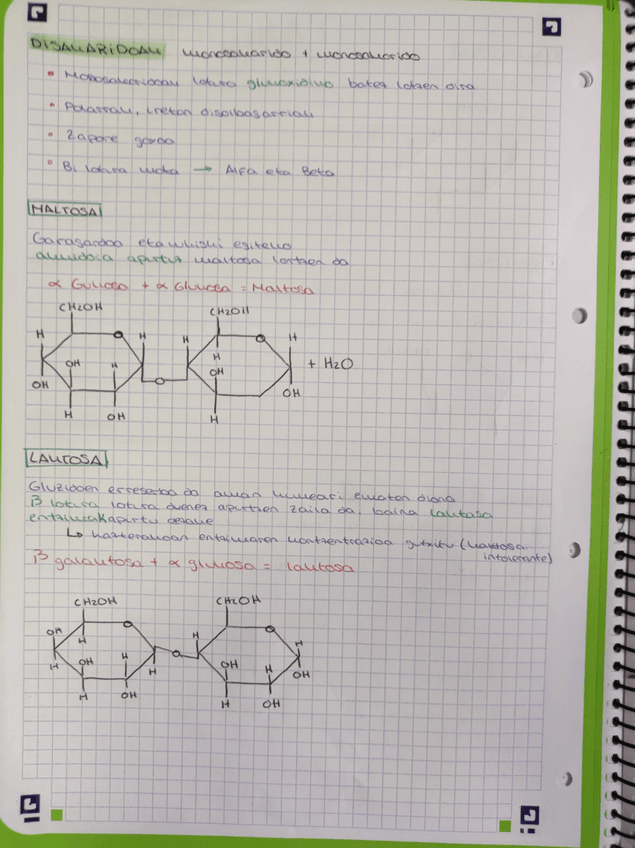 DISAKARIDOAK monosakarido + monosakarido
• Monosakaridoak lotura glukosidiko batez lotzen dira
• Polarrak, uretan disolbagarriak
• Zapore gozoa
• Bi lotura mota → Alfa eta Beta
MALTOSA
Garagardoa eta whiski egiteko
almidoia apurtuz maltosa lortzen da
α Glukosa + α Glukosa = Maltosa
CH2OH CH2OH
H O H H O H
OH H H OH + H2O
OH O OH
H OH H
LAKTOSA
Gluzidoen erreserba da amak umeari ematen diona
β lotura lotura duenez apurtzen zaila da, baina laktasa
entzimak apurtu dezake
↳ hazterakoan entzimaren kontzentrazioa gutxitu (laktosa
intolerante)
β galaktosa + α glukosa = laktosa
CH2OH CH2OH
OH O H O H
H H O
OH H H OH H OH
H OH H OH